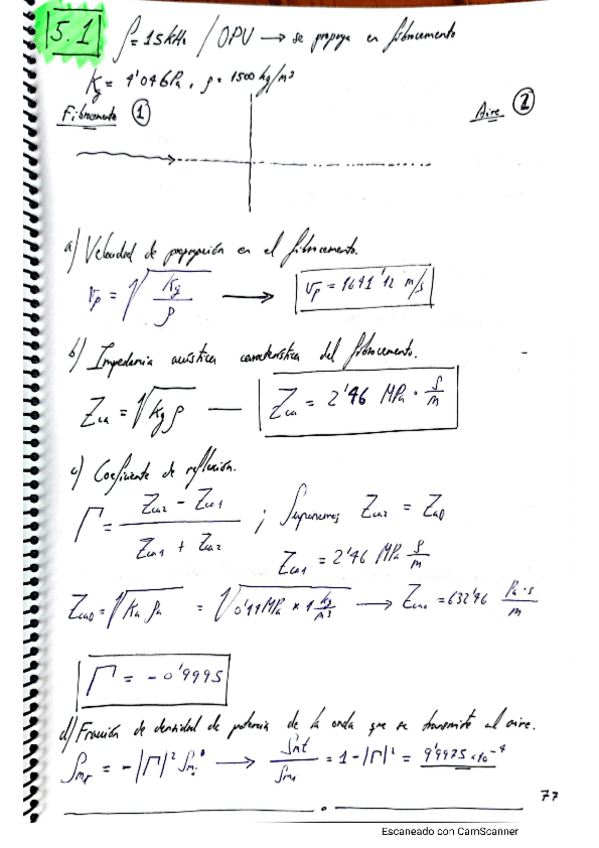 5.1 f = 15kHz / OPV → se propaga en fibrocemento
Kg = 4'04GPa, ρ = 1500 kg/m³
Fibrocemento ① Aire ②
a) Velocidad de propagación en el fibrocemento.
Vp = √(Kg/ρ) → Vp = 1641'12 m/s
b) Impedancia acústica característica del fibrocemento.
Zca = √(Kg ρ) — Zca = 2'46 MPa · s/m
c) Coeficiente de reflexión.
Γ = (Zca2 - Zca1)/(Zca1 + Zca2) ; Suponemos Zca2 = Zca0
Zca1 = 2'46 MPa s/m
Zca0 = √(Ka ρa) = √(0'4MPa × 1 kg/m³) → Zca0 = 632'46 Pa·s/m
Γ = - 0'9995
d) Fracción de densidad de potencia de la onda que se transmite al aire.
= -|Γ|² → = 1 - |Γ|² = 9'9975 ×10⁻⁴
77
Escaneado con CamScanner